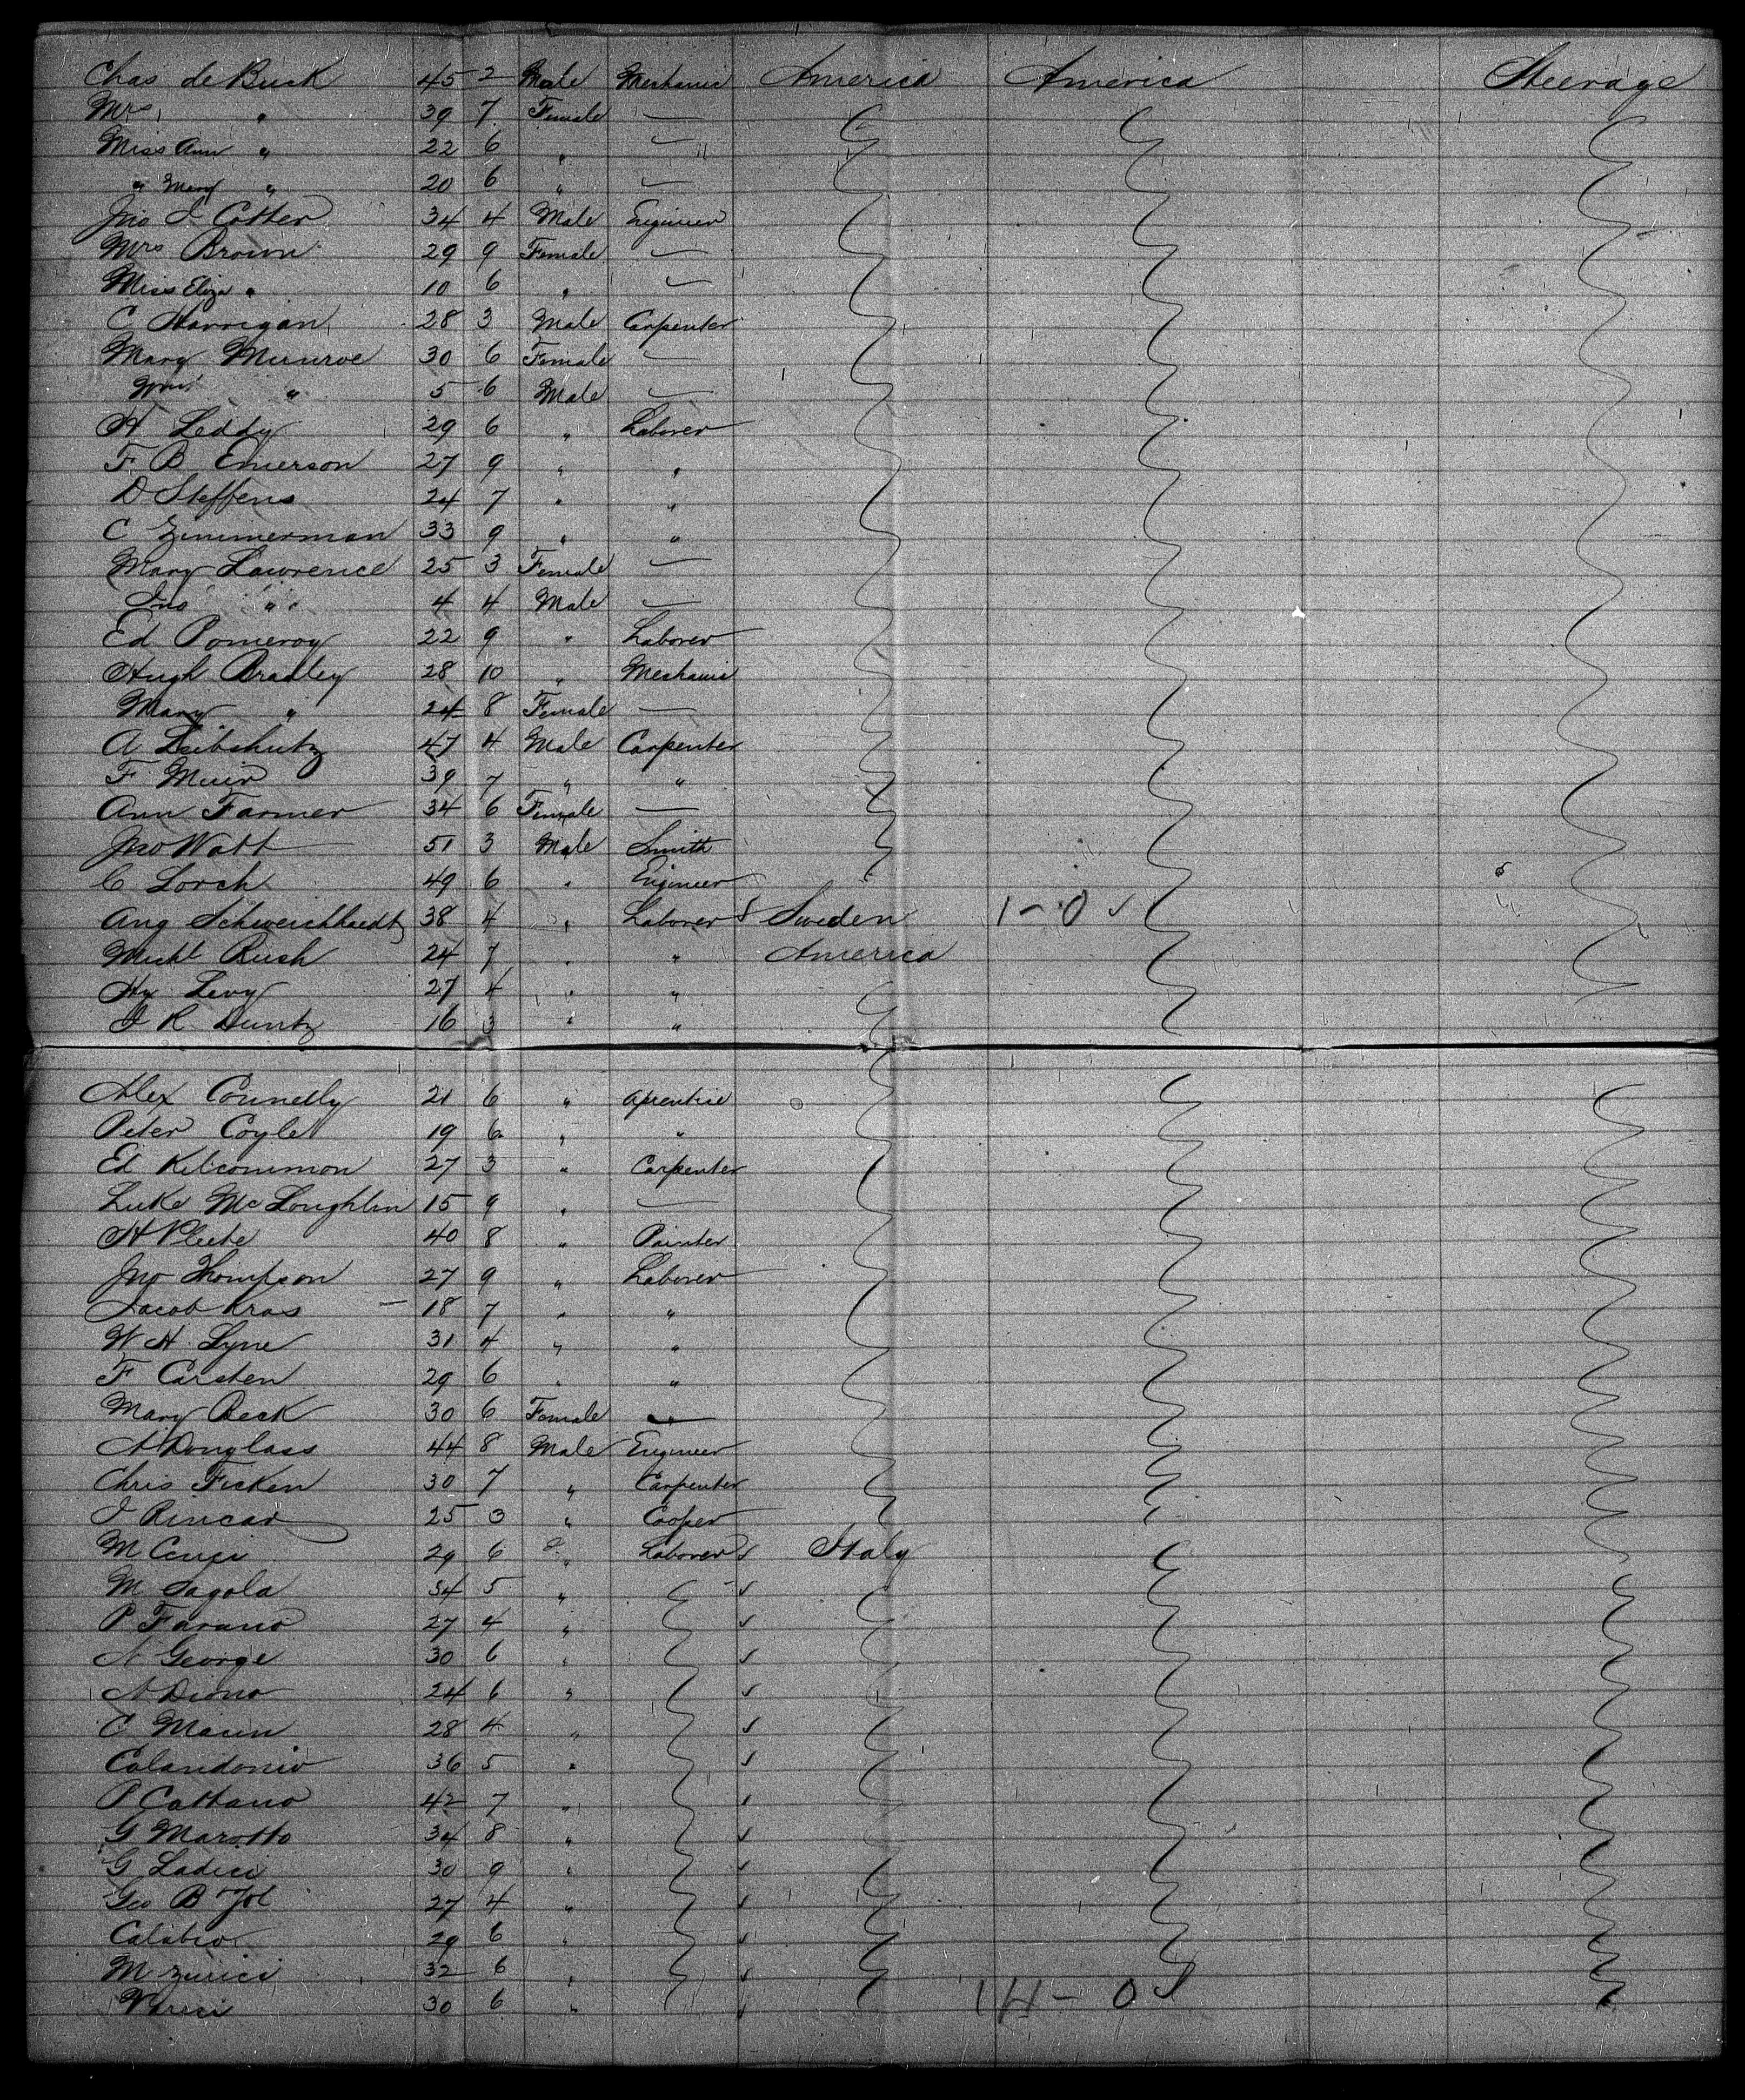 Chas de Buck 45 2 Male Mechanic America America Steerage
Mrs " 39 7 Female —
Miss Ann " 22 6 " —
" Mary " 20 6 " —
Jno J Cotter 34 4 Male Engineer
Mrs Brown 29 9 Female —
Miss Eliza " 10 6 " —
C Harrigan 28 3 Male Carpenter
Mary Munroe 30 6 Female —
Wm " 5 6 Male —
H Leddy 29 6 " Laborer
F B Emerson 27 9 " "
D Steffens 24 7 " "
C Zimmerman 33 9 " "
Mary Lawrence 25 3 Female —
Jno " 4 4 Male —
Ed Pomeroy 22 9 " Laborer
Hugh Bradley 28 10 " Mechanic
Mary " 24 8 Female —
A Leibshutz 47 4 Male Carpenter
F Muir 39 7 " "
Ann Farmer 34 6 Female —
Jno Watt 51 3 Male Smith
C Lorch 49 6 " Engineer
Aug 38 4 " Laborer Sweden 1-0 ✓
Michl Rush 24 7 " " America
Hy Levy 27 4 " "
J R Duntz 16 3 " "
Alex Connelly 21 6 " Aprentice
Peter Coyle 19 6 " "
Ed Kilcommon 27 3 " Carpenter
Luke McLoughlin 15 9 " —
H Pleete 40 8 " Painter
Jno Thompson 27 9 " Laborer
Jacob Kras — 18 7 " "
W H Lyne 31 4 " "
F Carsten 29 6 " "
Mary Beck 30 6 Female —
A Douglass 44 8 Male Engineer
Chris Ficken 30 7 " Carpenter
J Rincar 25 3 " Cooper
M 29 6 " Laborer ✓ Italy
M Sagola 34 5 " ✓
P Farano 27 4 " ✓
N George 30 6 " ✓
A Diono 24 6 " ✓
C Maun 28 4 " ✓
Calandonio 36 5 " ✓
P Cattano 42 7 " ✓
G Marotto 34 8 " ✓
G Ladici 30 9 " ✓
Geo B 27 4 " ✓
Calabro 29 6 " ✓
M Zurici 32 6 " ✓
30 6 " ✓ 14-0 ✓